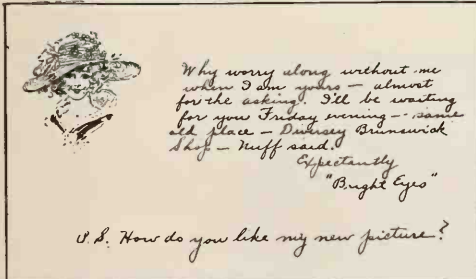 Why worry along without me
when I am yours — almost
for the asking. I'll be waiting
for you Friday evening -- same
old place — Brunswick
Shop — Nuff said.
Expectantly
"Bright Eyes"
P.S. How do you like my new picture?